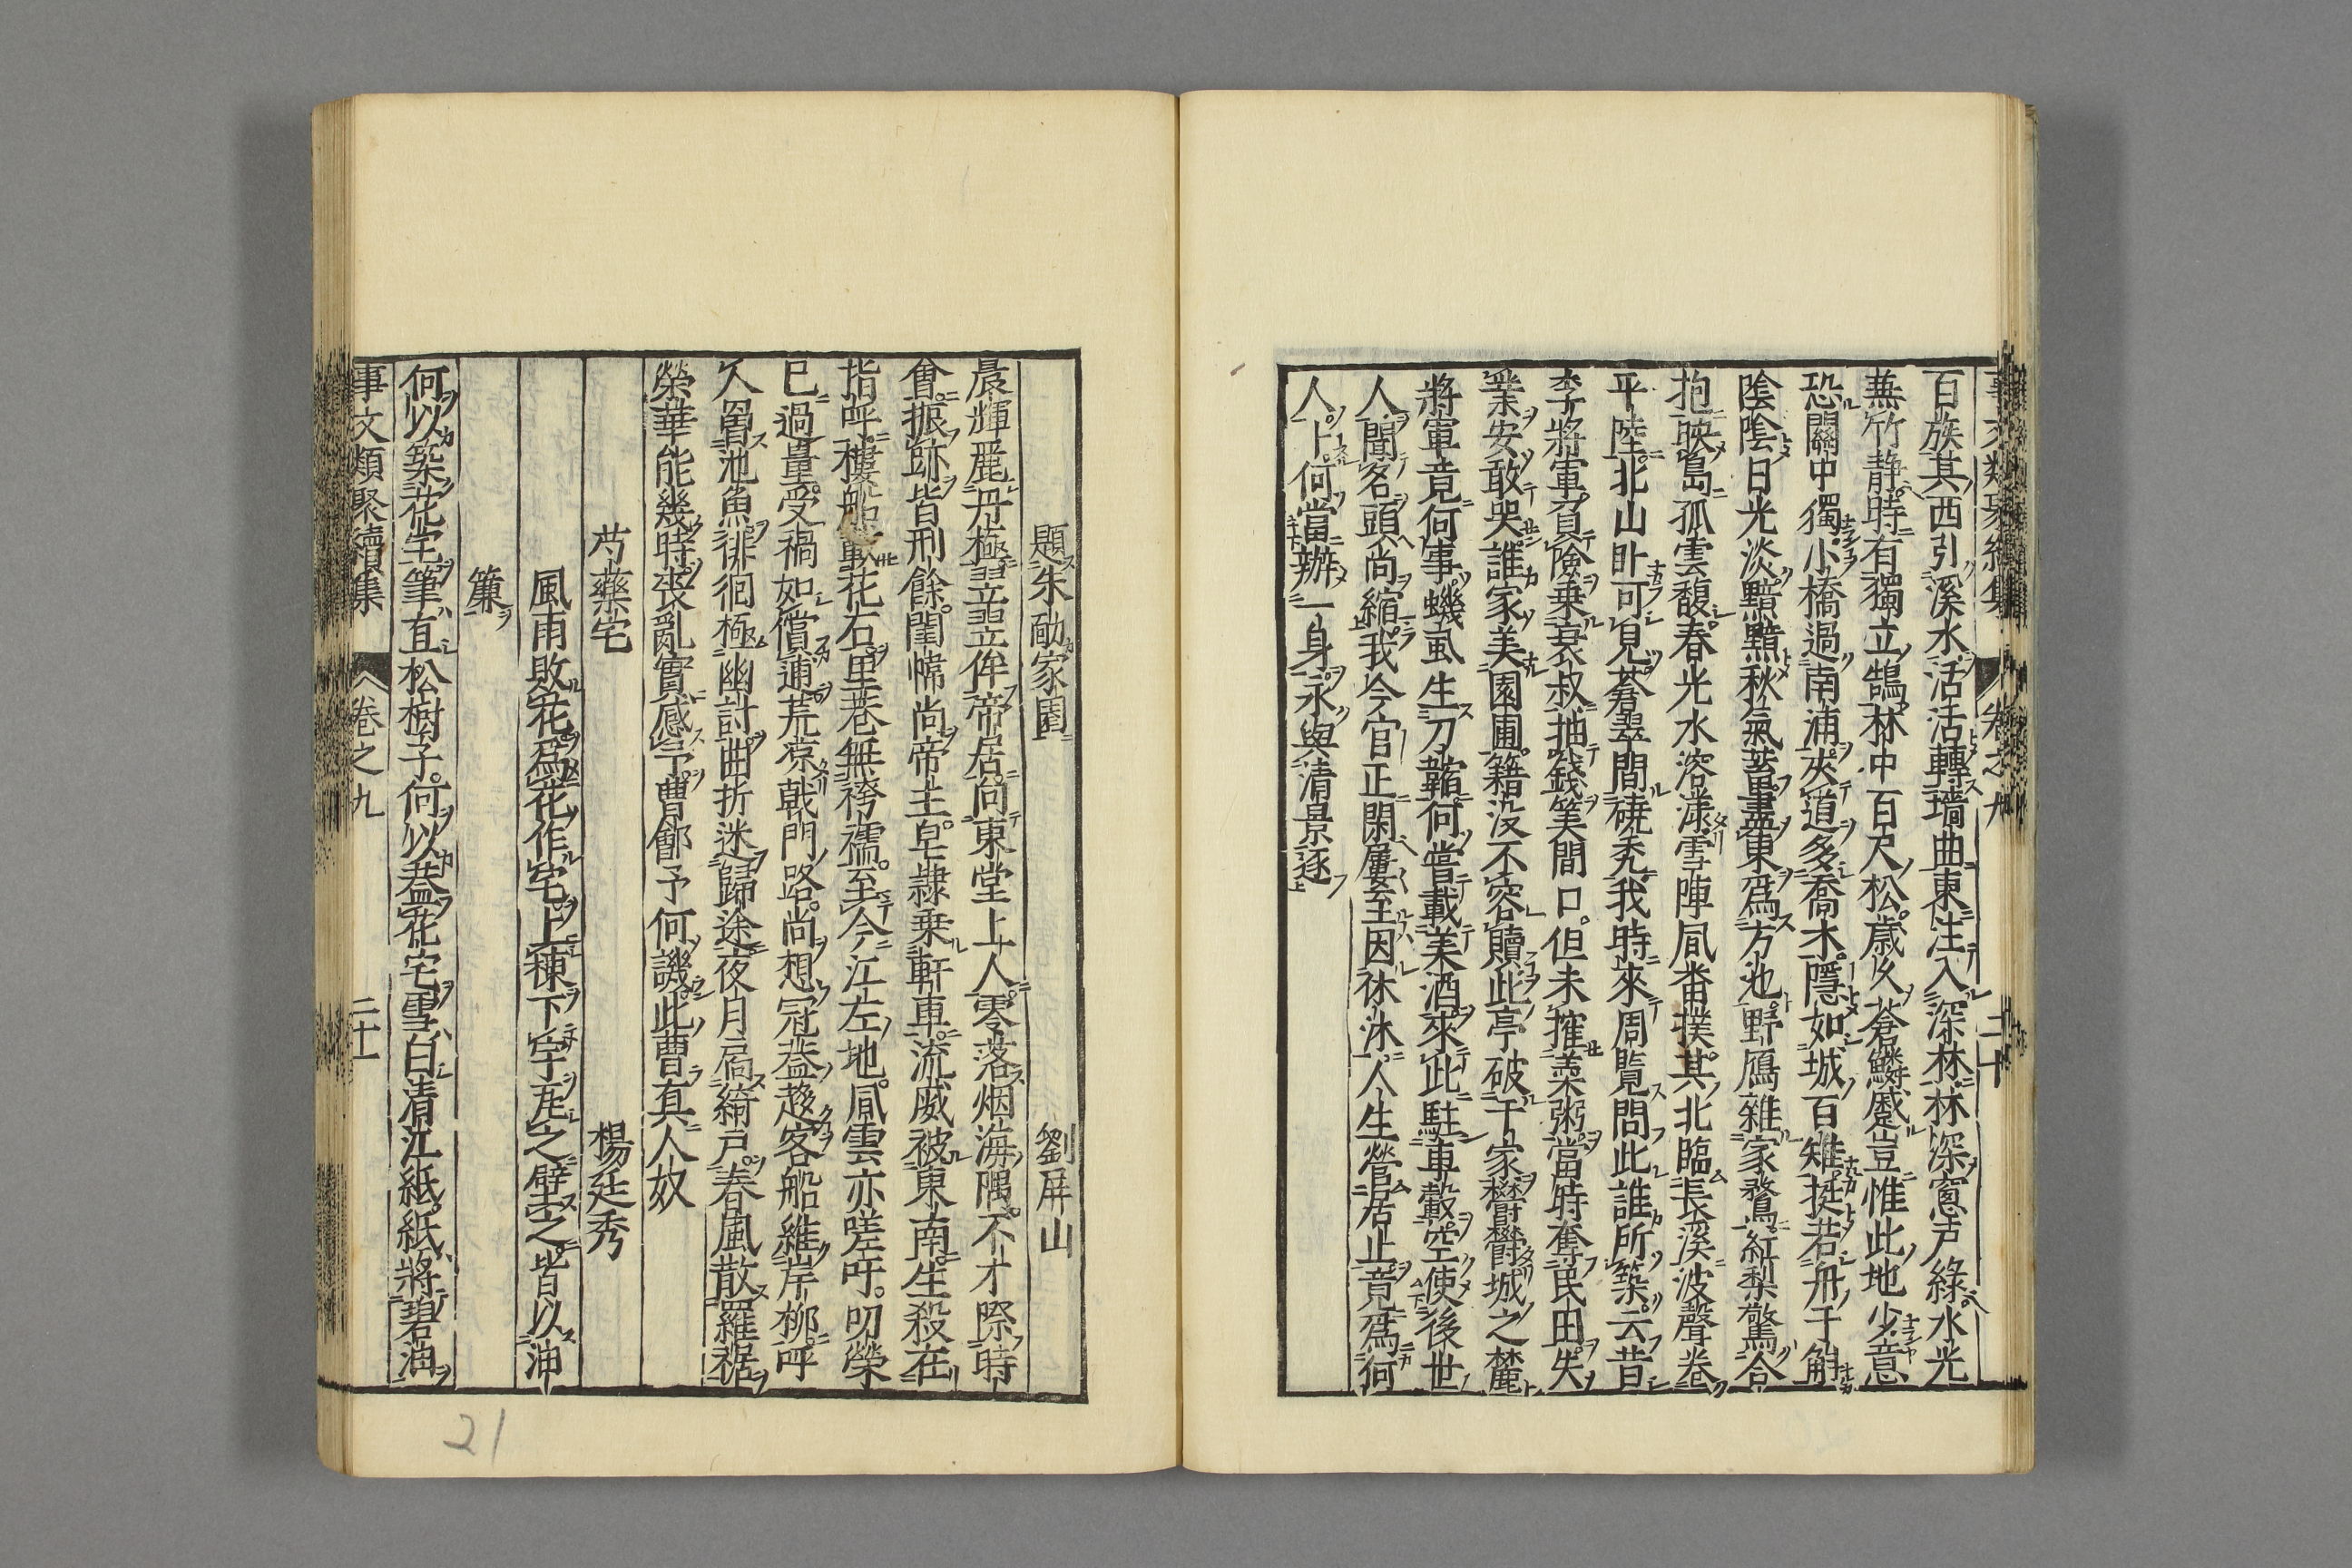 事文類聚續集 卷之九 二十
百族其西引溪水活活轉墻曲東注入深林林深窓戸綠水光
無竹靜時有獨立鵠林中百尺松歲久蒼鱗蹙豈惟此地少意
恐關中獨小橋過南浦夾道多喬木隱如城百雉挺若舟千斛
陰陰日光淡黯黯秋氣蓄盡東爲方池野鴈雜家鶩紅梨驚合
抱映島孤雲馥春光水溶漾雪陣風番撲其北臨長溪波聲卷
平陸北山臥可見蒼翠間磽禿我時來周覽問此誰所築云昔
李將軍負險乗衰叔抽錢筭間口但未搉羹粥當時奪民田失
業安敢哭誰家美園圃籍没不容贖此亭破千家欝欝城之麓
將軍竟何事蟣虱生刀韣何嘗載美酒來此駐車轂空使後世
人聞名頭尚縮我今官正閑屢至因休沐人生營居止竟爲何
人卜何當辦一身永與清景逐
題朱勔家園 劉屏山
晨輝麗丹極翌翌侔帝居向東堂上人零落烟海隅不才際時
會振跡皆刑餘閨幃尚帝主皂隷乗軒車流威被東南生殺在
指呼樓船載花石里巷無袴襦至今江左地風雲亦嗟吁叨榮
已過量受禍如償逋荒凉戟門路尚想冠蓋趍客船維岸柳呼
人罾池魚徘徊極幽討曲折迷歸途夜月扃綺戸春風散羅裾
榮華能幾時喪亂實感予曹鄶予何譏此曹真人奴
芍藥宅 楊廷秀
風雨敗花爲花作宅上棟下宇庇之壁之皆以油
簾
何以築花宅筆直松樹子何以蓋花宅雪白清江紙紙將碧油
事文類聚續集 卷之九 二十一
21